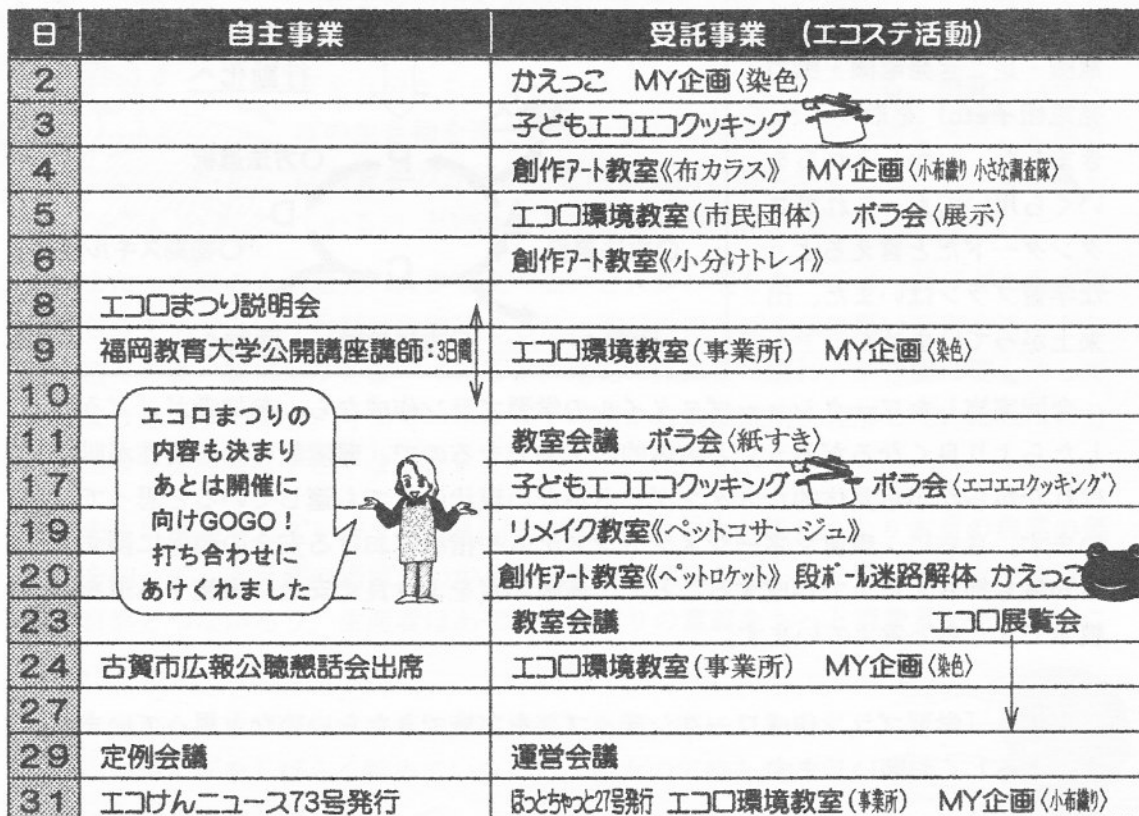 日 自主事業 受託事業 （エコステ活動）
2 かえっこ MY企画〈染色〉
3 子どもエコエコクッキング
4 創作アート教室《布カラス》 MY企画〈小布織り 小さな調査隊〉
5 エコロ環境教室（市民団体） ボラ会〈展示〉
6 創作アート教室《小分けトレイ》
8 エコロまつり説明会
9 福岡教育大学公開講座講師：3日間 エコロ環境教室（事業所） MY企画〈染色〉
10
11 教室会議 ボラ会〈紙すき〉
17 子どもエコエコクッキング ボラ会〈エコエコクッキング〉
19 リメイク教室《ペットコサージュ》
20 創作アート教室《ペットロケット》 段ボール迷路解体 かえっこ
23 教室会議 エコロ展覧会
24 古賀市広報公聴懇話会出席 エコロ環境教室（事業所） MY企画〈染色〉
27
29 定例会議 運営会議
31 エコけんニュース73号発行 ほっとちゃっと27号発行 エコロ環境教室（事業所） MY企画〈小布織り〉
エコロまつりの
内容も決まり
あとは開催に
向けGOGO！
打ち合わせに
あけくれました